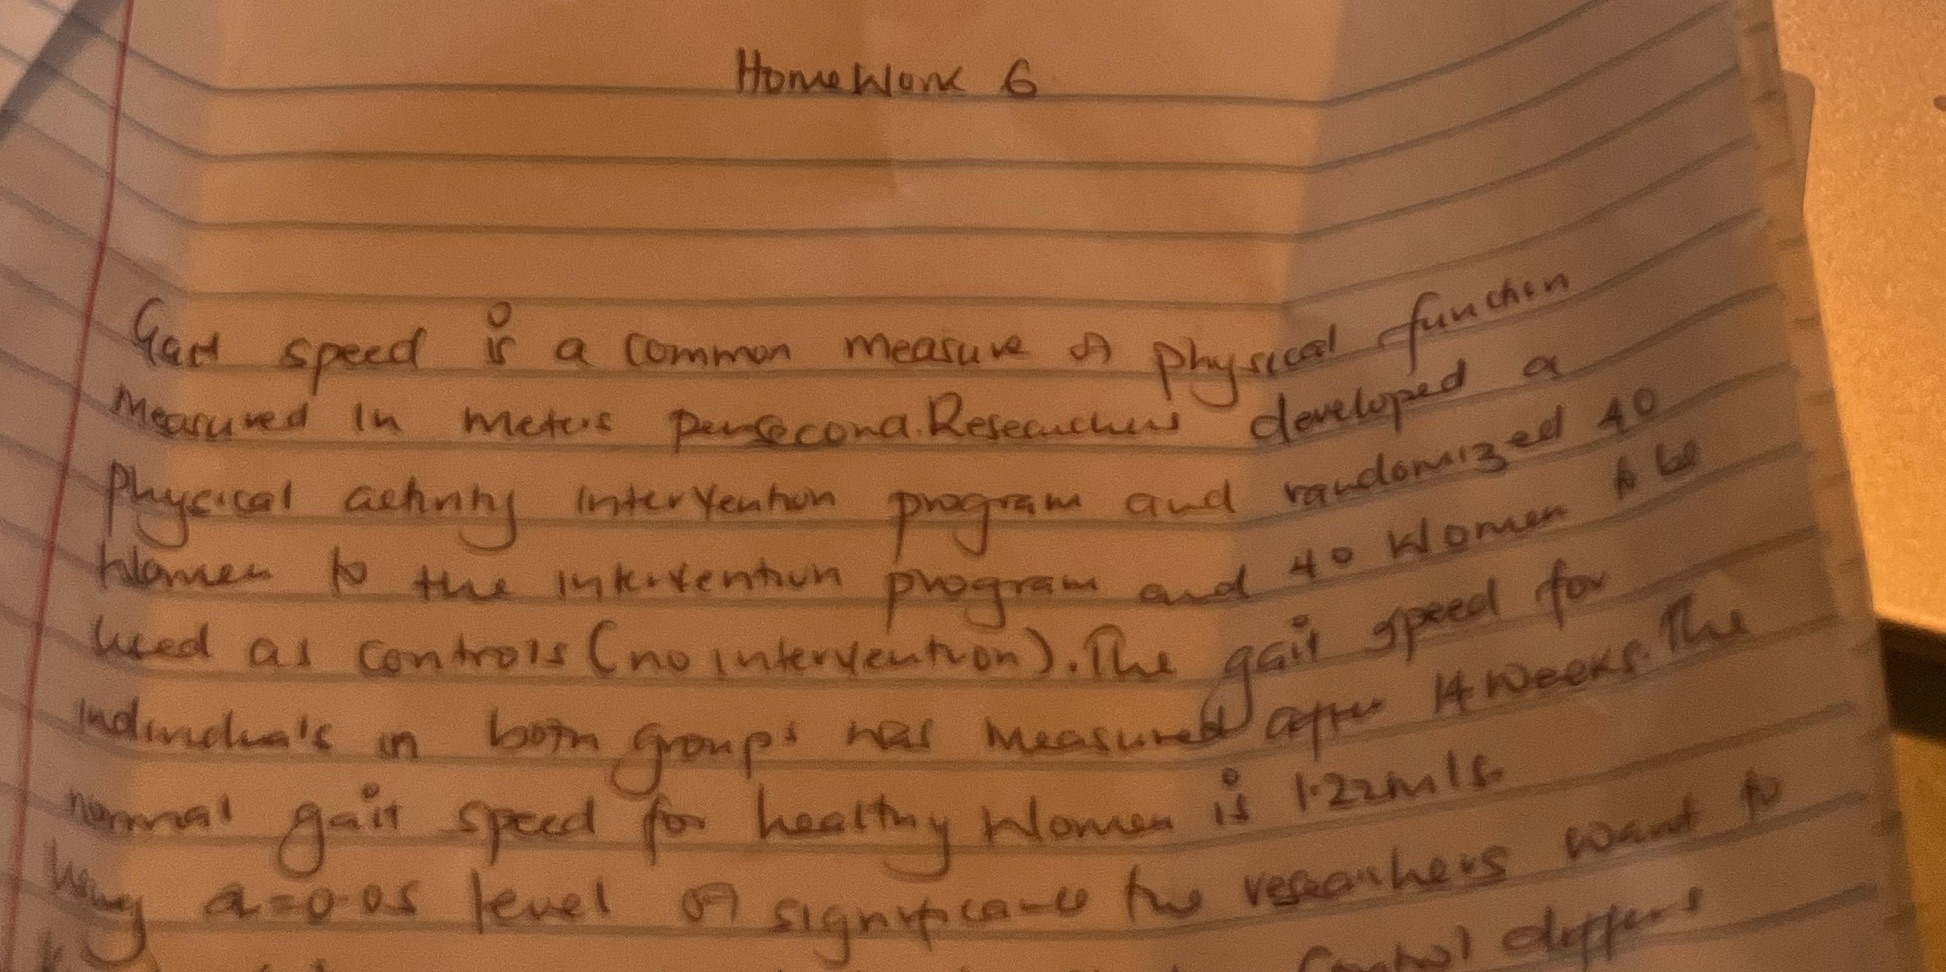 HomeWork 6
Gait speed is a common measure of physical function
measured in meters persecond. Researchers developed a
physical activity intervention program and randomized 40
Women to the intervention program and 40 Women to be
used as controls (no intervention). The gait speed for
individuals in both groups was measured after 14 weeks. The
normal gait speed for healthy Women is 1.22m/s.
Using α=0.05 level of significance the researchers want to
Control differs